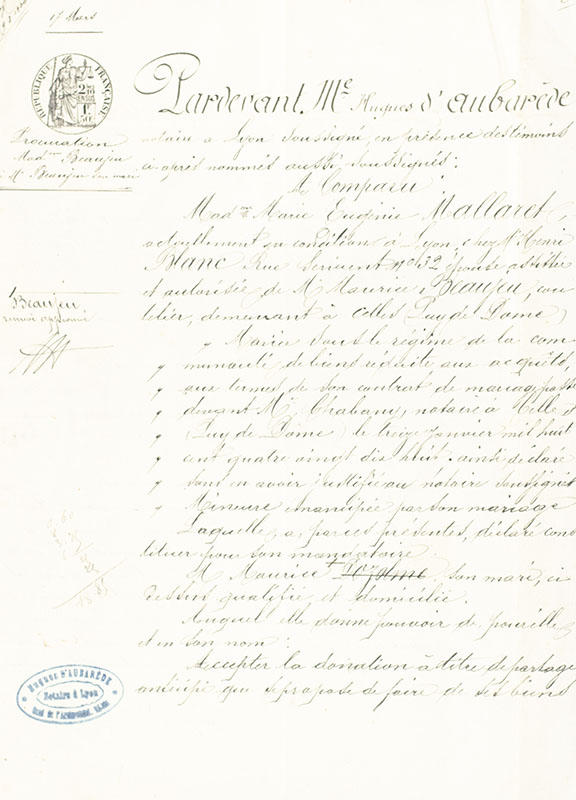 17 Mars
RÉPUBLIQUE FRANÇAISE
Procuration
Mad.me Beaujeu
à Mr Beaujeu son mari
Pardevant Me Hugues d'aubarède
notaire à Lyon soussigné, en présence des témoins
ci après nommés aussi soussignés:
A Comparu
Madme Marie Eugénie Mallaret,
actuellement en condition à Lyon, chez Mr Henri
Blanc Rue Servient no 32 épouse assistée
et autorisée de M Maurice Beaujeu, cou
telier, demeurant à Celles (Puy de Dôme)
Beaujeu
renvoi approuvé
" Mariée sous le régime de la com
" munauté de biens réduite aux acquêts,
" aux termes de son contrat de mariage passé
" devant Me Chabany, notaire à Celles
" (Puy de Dôme) le treize janvier mil huit
" cent quatre vingt dix huit, ainsi déclaré
" sans en avoir justifié au notaire soussigné
" Mineure émancipée par son mariage
Laquelle a, par ces présentes, déclaré cons
tituer pour son mandataire
M Maurice son mari, ci
dessus qualifié et domicilié.
Auquel elle donne pouvoir de pour elle
et en son nom:
Accepter la donation à titre de partage
anticipé que se propose de faire de ses biens
Hugues D'AUBARÈDE
Notaire à Lyon